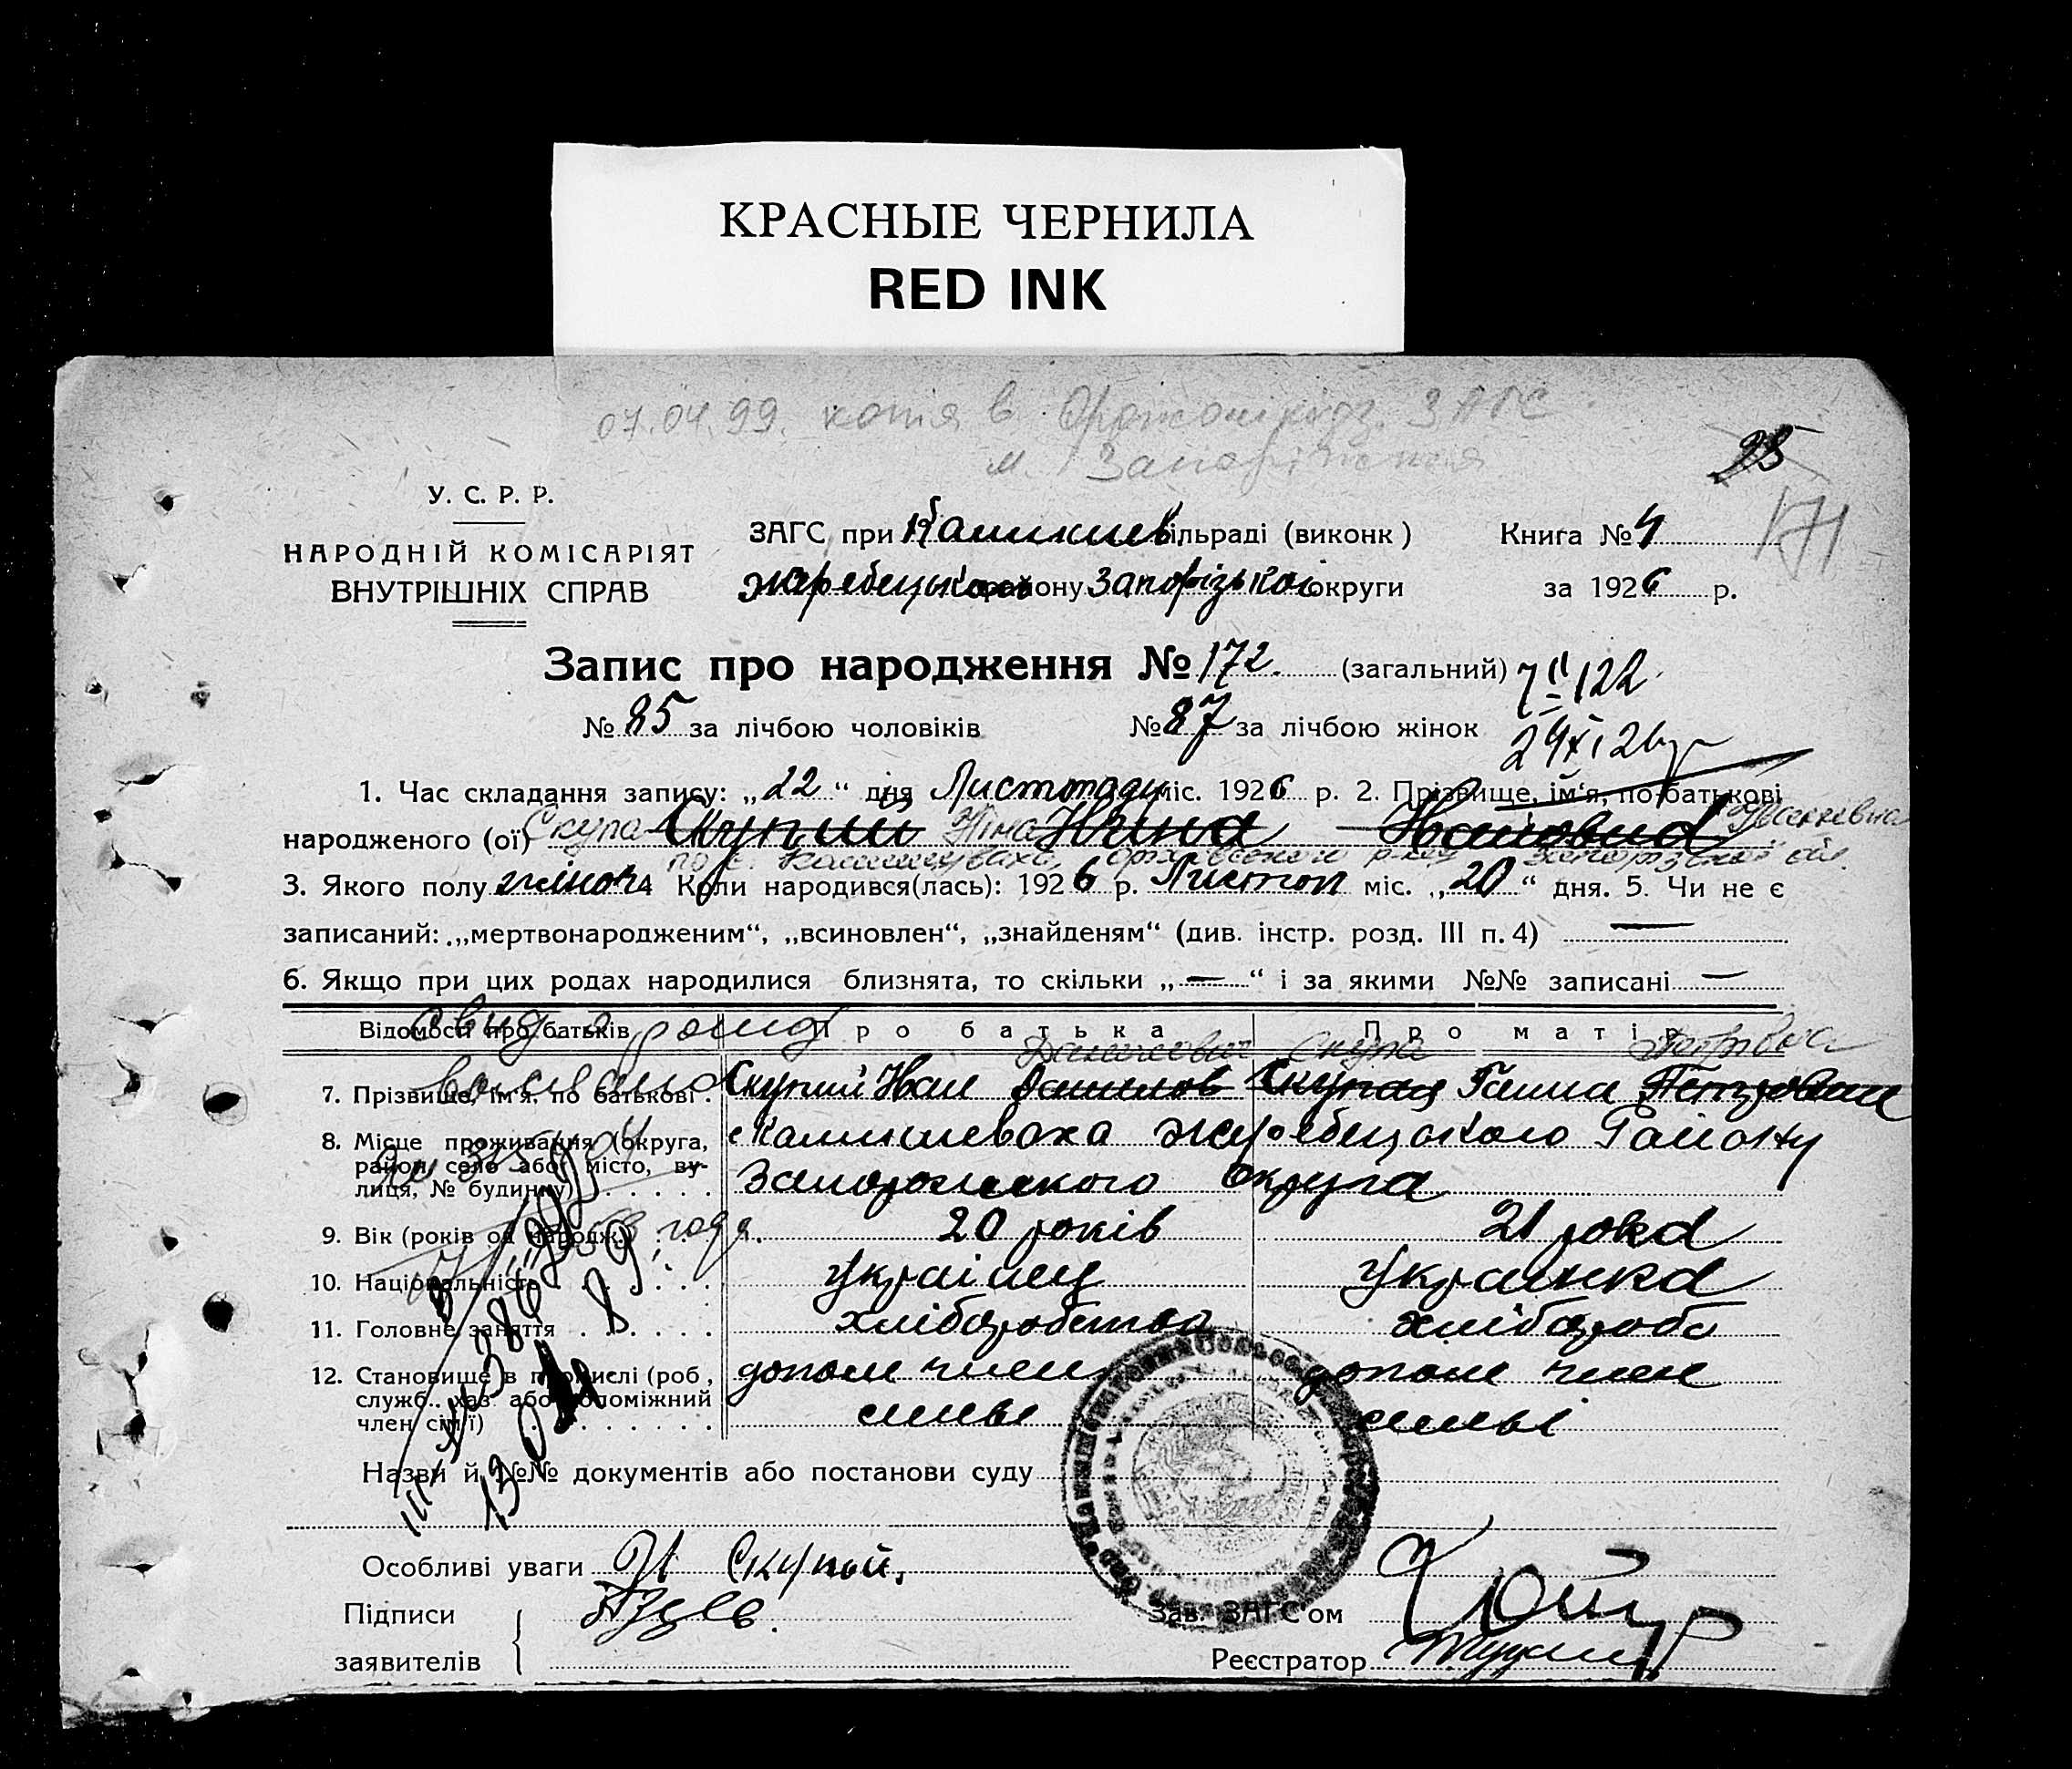 КРАСНЫЕ ЧЕРНИЛА
RED INK
07.04.99. копія в Орджонікідз. ЗАГС
м. Запоріжжя
25
171
У. С. Р. Р.
НАРОДНІЙ КОМІСАРІЯТ
ВНУТРІШНІХ СПРАВ
ЗАГС при Камишев. сільраді (виконк) Книга № 4
Жеребецького району Запорізької округи за 1926 р.
Запис про народження № 172. (загальний)
№ 85 за лічбою чоловіків № 87 за лічбою жінок
1. Час складання запису: „22“ дня Листопаду міс. 1926 р. 2. Прізвище, ім‘я, по-батькові
народженого (ої) Скупа Скупий Ніна Нина Ивановна Іванівна
3. Якого полу жіноч 4 Коли народився(лась): 1926 р. Листоп міс. „20“ дня. 5. Чи не є
записаний: „мертвонародженим“, „всиновлен“, „знайденям“ (див. інстр. розд. III п. 4) —
6. Якщо при цих родах народилися близнята, то скільки „—“ і за якими №№ записані —
Відомості про батьків Про батька Про матір
Данилович Скупа Петрівна
7. Прізвище, ім‘я, по батькові Скупий Иван Данилов Скупая Ганна Петровна
8. Місце проживання (округа, район, село або місто, вулиця, № будинку) с Камишеваха Жеребецького Району
Запорожского Округа
9. Вік (років од народж.) 20 років 21 рока
10. Національність українец Украинка
11. Головне заняття хліборобство хлібороб
12. Становище в промислі (роб, служб.. хаз або допоміжний член сім‘ї) допом член допом член
семьі семьі
Назви й №№ документів або постанови суду
Особливі уваги И Скупой,
Підписи
заявителів
Зав. ЗАГС‘ом
Реєстратор